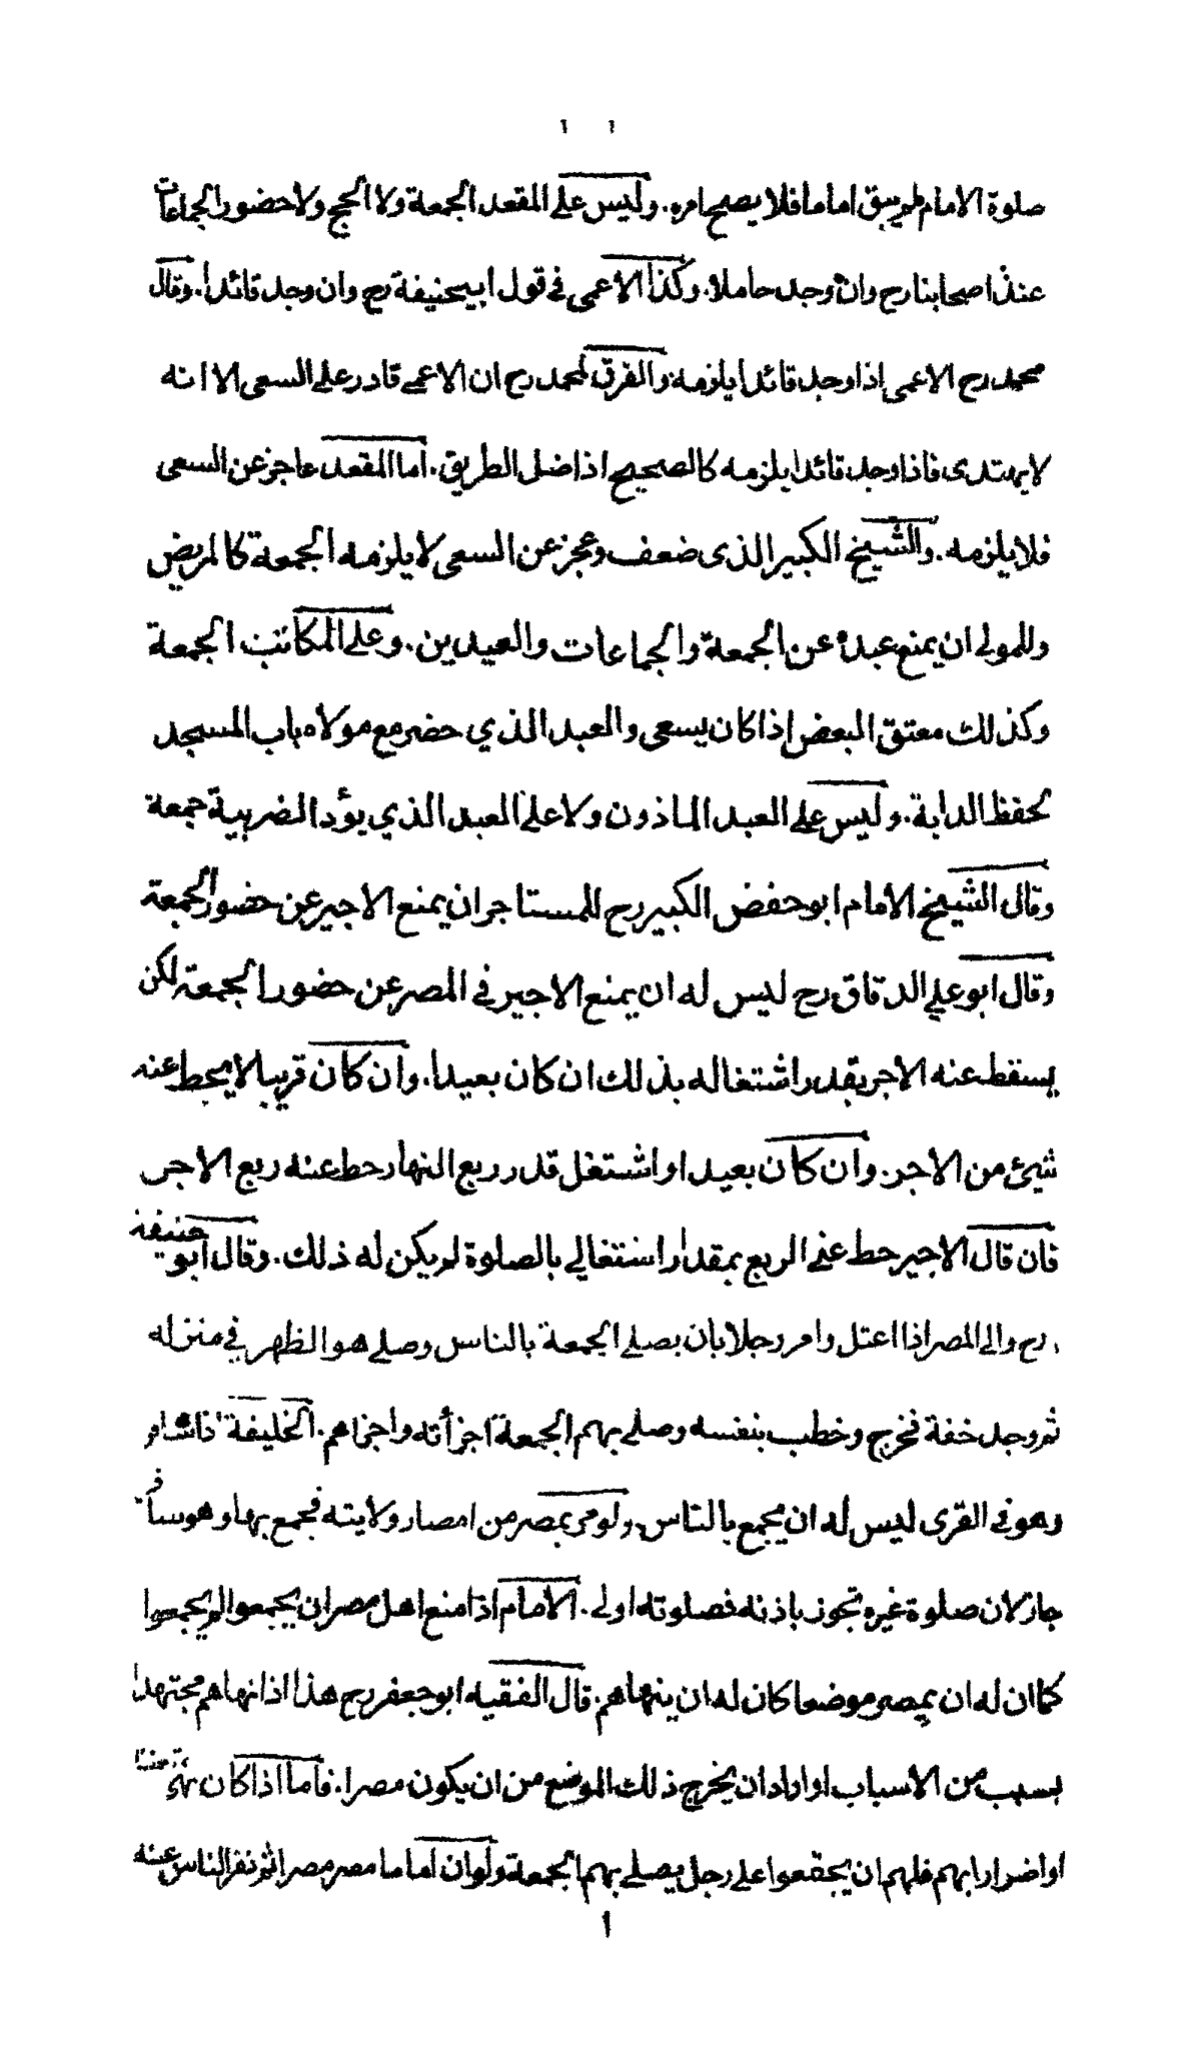 ١ ١
صلوة الامام لم يبق اماما فلا يصح امره. وليس على المقعد الجمعة ولا الحج ولا حضور الجماعات
عند اصحابنا رح وان وجد حاملا. وكذا الاعمى في قول ابيحنيفة رح وان وجد قائدا. وقال
محمد رح الاعمى اذا وجد قائدا يلزمه والفرق لمحمد رح ان الاعمى قادر على السعى الا انه
لا يهتدى فاذا وجد قائدا يلزمه كالصحيح اذا ضل الطريق. اما المقعد عاجز عن السعى
فلا يلزمه. والشيخ الكبير الذى ضعف وعجز عن السعى لا يلزمه الجمعة كالمريض
وللمولى ان يمنع عبده عن الجمعة والجماعات والعيدين. وعلى المكاتب الجمعة
وكذلك معتق البعض إذا كان يسعى والعبد الذي حضر مع مولاه باب المسجد
لحفظ الدابة. وليس على العبد الماذون ولا على العبد الذي يؤد الضريبة جمعة
وقال الشيخ الامام ابو حفض الكبير رح للمستاجر ان يمنع الاجير عن حضور الجمعة
وقال ابو علي الدقاق رح ليس له ان يمنع الاجير في المصر عن حضور الجمعة لكن
يسقط عنه الاجر بقدر اشتغاله بذلك ان كان بعيدا. وان كان قريبا لا يحط عنه
شيئ من الاجر. وان كان بعيدا و اشتغل قدر ربع النهار حط عنه ربع الاجر
فان قال الاجير حط عنى الربع بمقدار اشتغالي بالصلوة لم يكن له ذلك. وقال ابو حنيفة
رح والى المصر اذا اعتل وامر رجلا بان يصلى الجمعة بالناس وصلى هو الظهر في منزله
ثم وجد خفة فخرج وخطب بنفسه وصلى بهم الجمعة اجزأته واجزاهم. الخليفة اذا سافر
وهو في القرى ليس له ان يجمع بالناس. ولو مر بمصر من امصار ولايته فجمع بها وهو مسافر
جاز لان صلوة غيره تجوز باذنه فصلوته اولى. الامام اذا منع اهل مصر ان يجمعوا لم يجمعوا
كما ان له ان يمصر موضعا كان له ان ينهاهم. قال الفقيه ابو جعفر رح هذا اذا نهاهم مجتهدا
بسبب من الاسباب او اراد ان يخرج ذلك الموضع من ان يكون مصرا. فاما اذا كان نهى متعنتا
او اضرارا بهم فلهم ان يجتمعوا على رجل يصلى بهم الجمعة ولو ان اماما مصر مصرا ثم نفر الناس عنه
١